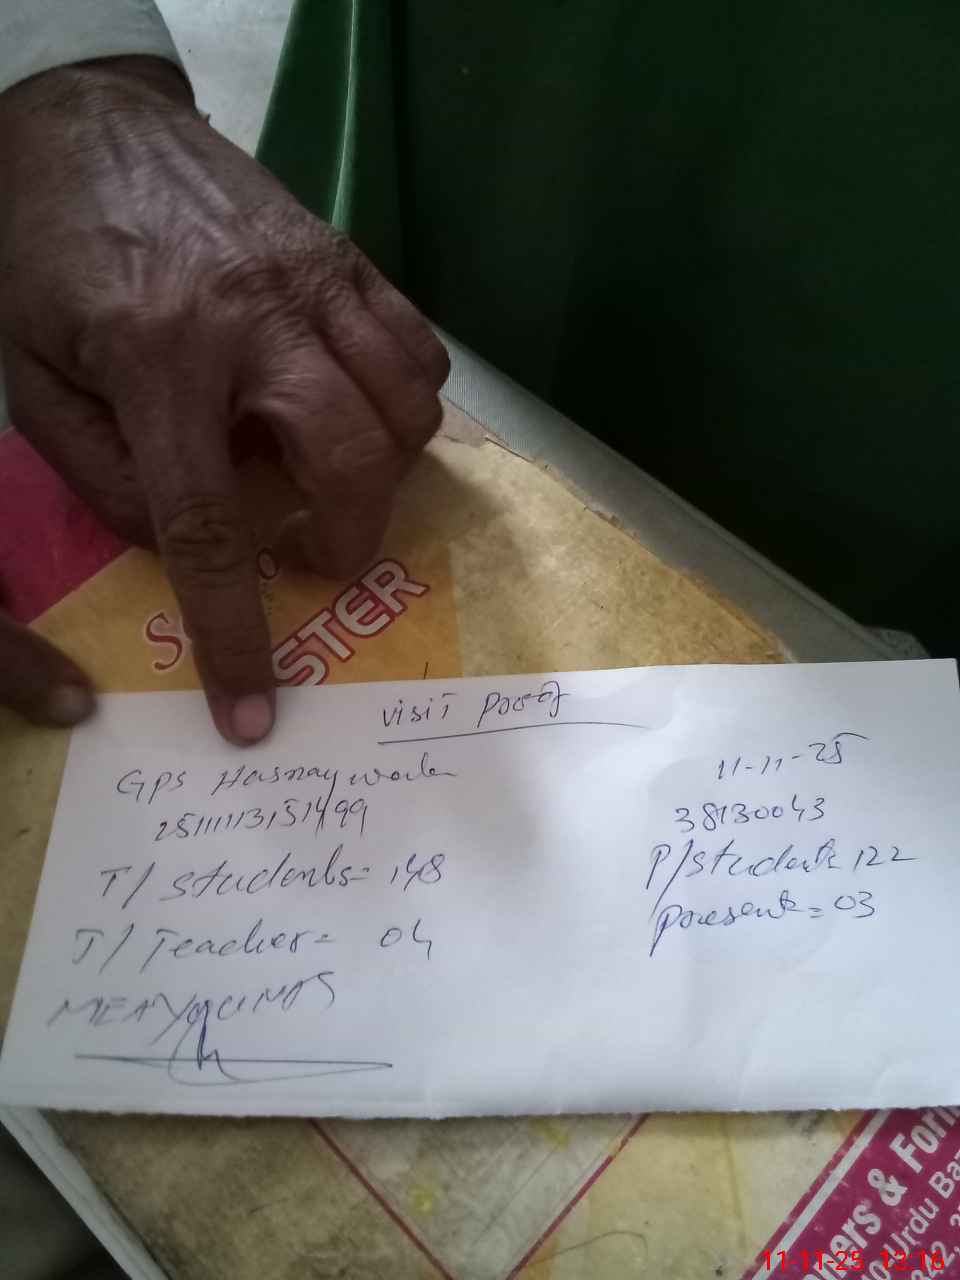 STER
Visit Proof
GPS Hasnay
11-11-25
38130043
T/ Students= 148
P/Students 122
T/ Teacher= 04
Present= 03
MEA YOUNAS
ers & For
Urdu Ba
11-11-25 13:16